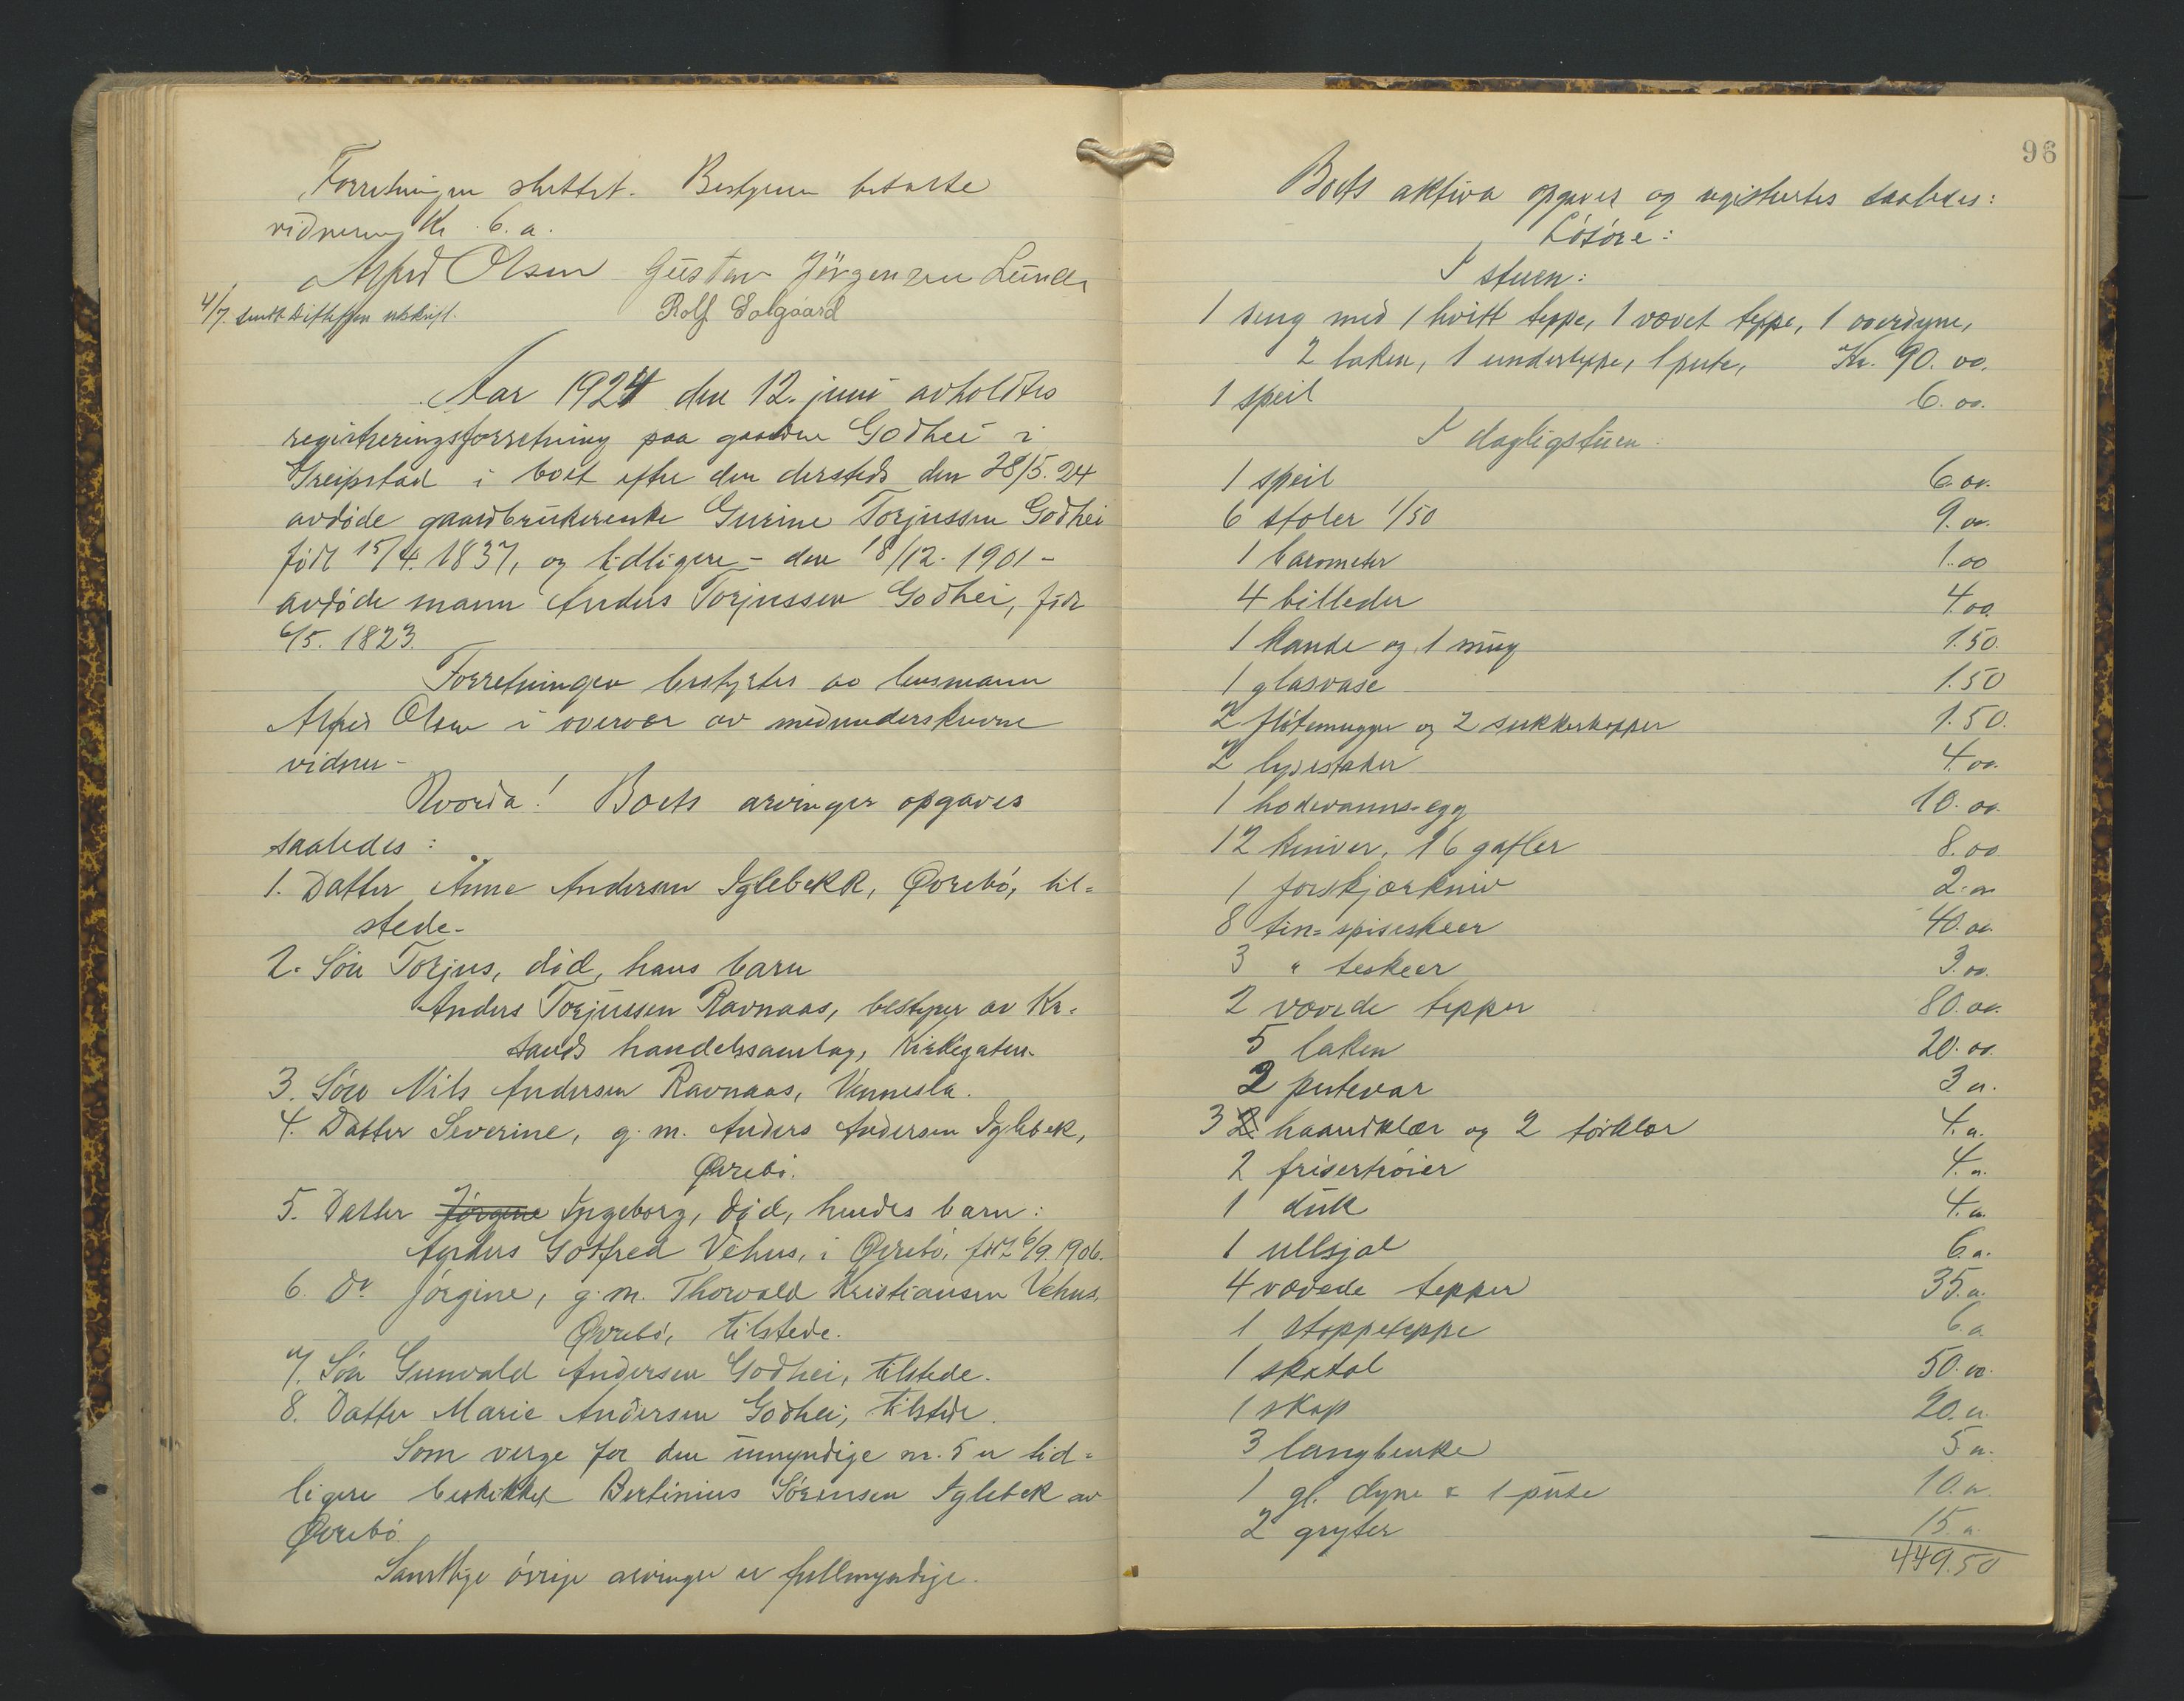 Forretningen sluttet. Bestyreren betalte
vidneneng Kr. 6.00.
Alfred Olsen Gustav Jörgensen Lunde
4/7. sendt Ditlefsen utskrift. Rolf Dolgaard
Aar 1924 den 12. juni avholdtes
registreringsforretning paa gaarden Godhei i
Greipstad i boet efter den dersteds den 28/5. 24
avdöde gaardbrukerenke Gurine Torjussen Godhei
födt 15/4. 1837, og tidligere – den 18/12. 1901 –
avdöde mann Anders Torjussen Godhei, födt
6/5. 1823.
Forretningen bestyrtes av lensmann
Alfred Olsen i overvær av medunderskrevne
vidner –
Hvorda! Boets arvinger opgaves
saaledes:
1. Datter Anne Andersen Iglebekk, Øvrebö, til=
stede –
2. Sön Torjus, död, hans barn
Anders Torjussen Ravnaas, bestyrer av Kr.
sands handelssamlag, Kirkegaten.
3. Sön Nils Andersen Ravnaas, Vennesla.
4. Datter Severine, g. m. Anders Andersen Iglebek,
Øvrebö.
5. Datter Jörgine Ingeborg, död, hendes barn:
Anders Gotfred Vehus, i Øvrebö, född 6/9. 1906.
6. Do Jörgine, g. m. Thorvald Kristiansen Vehus,
Øvrebö, tilstede.
7. Sön Gunvald Andersen Godhei, tilstede.
8. Datter Marie Andersen Godhei, tilstede.
Som verge for den umyndige nr. 5 er tid=
ligere beskikket Bertinius Sörensen Iglebek av
Øvrebö.
Samtlige övrige arvinger er fullmyndige.
96
Boets aktiva opgaves og registertes saaledes:
Lösöre:
I stuen:
1 seng med 1 hvitt teppe, 1 vævet teppe, 1 overdyne,
2 laken, 1 underteppe, 1 pute, Kr. 90.00.
1 speil 6.00.
I dagligstuen:
1 speil 6.00.
6 stoler 1/50 9.00.
1 barometer 1.00
4 billeder 4.00.
1 kande og 1 mug 1.50.
1 glasvase 1.50
2 flötemugger og 2 sukkerkopper 1.50.
2 lysestaker 4.00.
1 hodevanns-egg 10.00.
12 kniver, 16 gafler 8.00
1 forskjærkniv 2.00
8 tin=spiseskeer 40.00.
3 " teskeer 3.00.
2 vævede tepper 80.00.
5 laken 20.00.
2 putevar 3.00.
3 2 haandklær og 2 törklær 4.00.
2 frisertröier 4.00.
1 duk 4.00.
1 ullsjal 6.00.
4 vævede tepper 35.00.
1 stoppeteppe 6.00
1 skatol 50.00.
1 skap 20.00
3 langbenke 5.00.
1 gl. dyne & 1 pute 10.00
2 gryter 15.00.
449.50